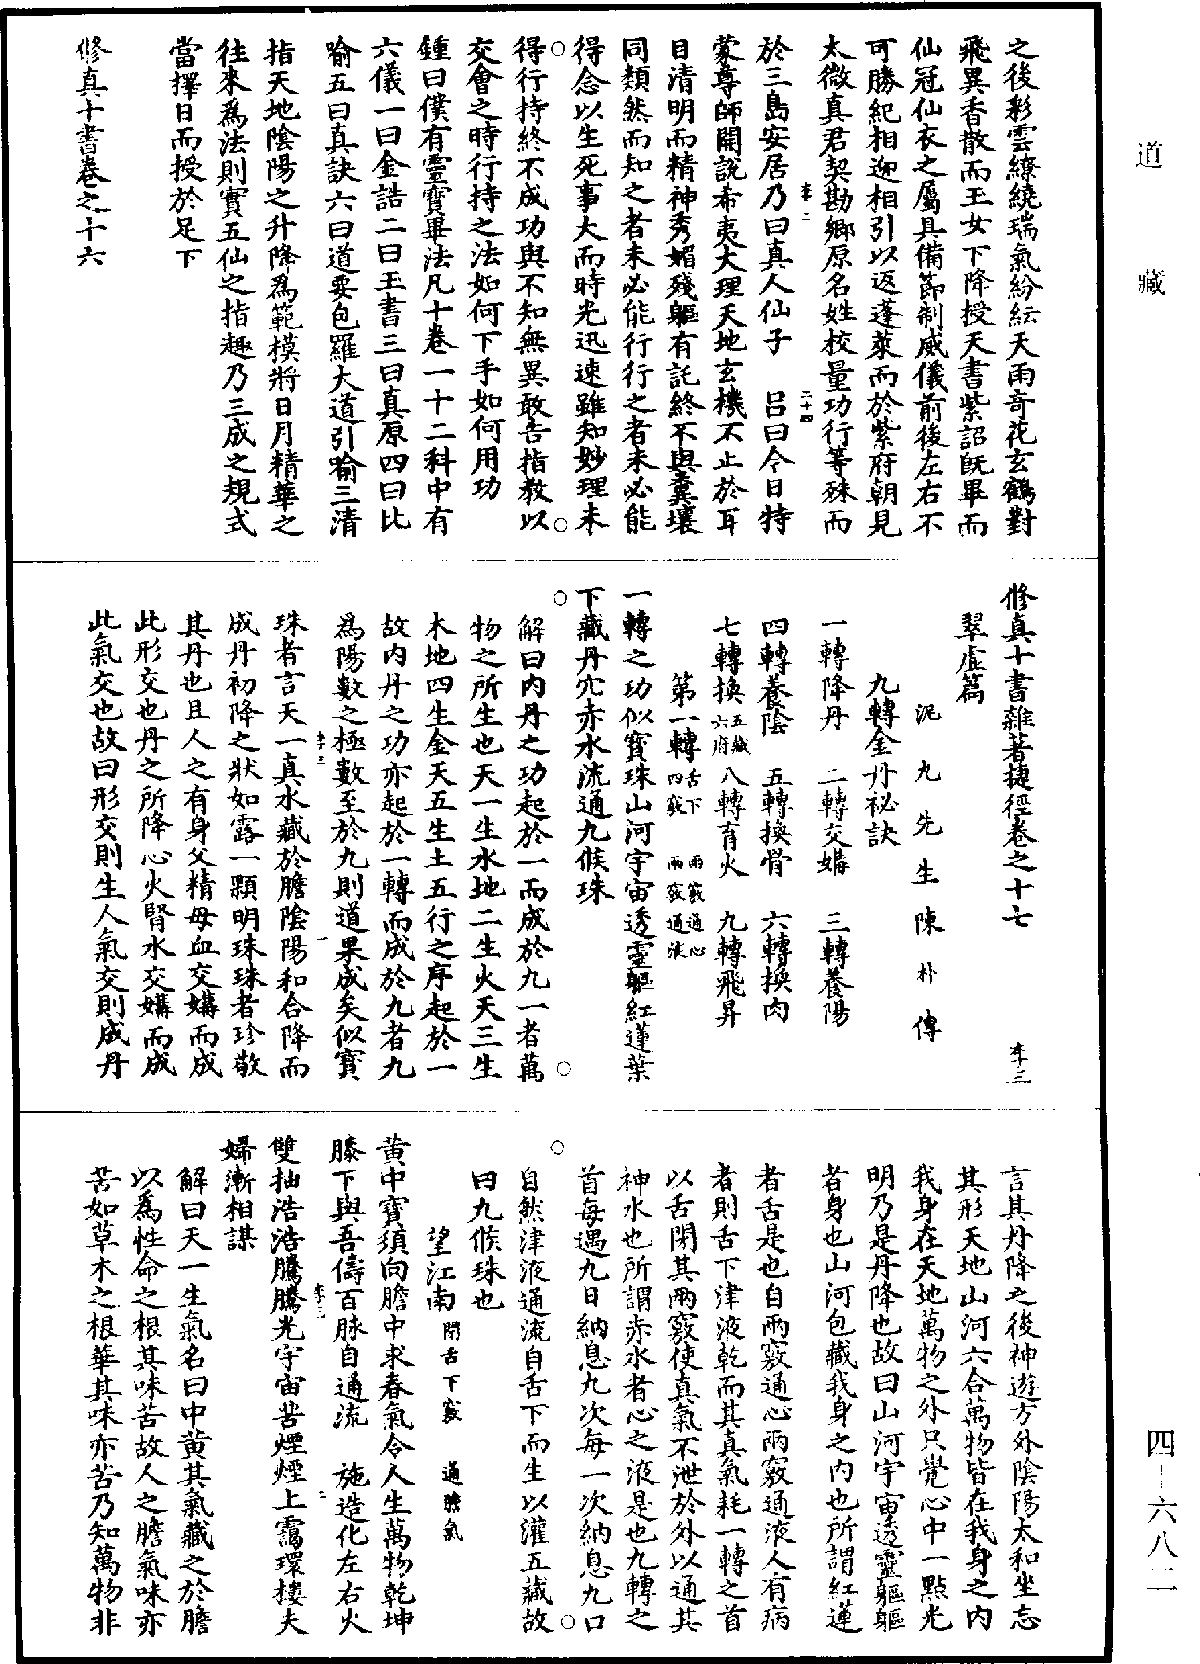 道藏
四－六八二
之後彩雲繚繞瑞氣紛紜天雨奇花玄鶴對
飛異香散而玉女下降授天書紫詔既畢而
仙冠仙衣之屬具備節制威儀前後左右不
可勝紀相迎相引以返蓬萊而於紫府朝見
太微真君契勘鄉原名姓校量功行等殊而
於三島安居乃曰真人仙子　呂曰今日特
蒙尊師開說希夷大理天地玄機不止於耳
目清明而精神秀媚殘軀有託終不與糞壤
同類然而知之者未必能行行之者未必能
得念以生死事大而時光迅速雖知妙理未
得行持終不成功與不知無異敢告指教以
交會之時行持之法如何下手如何用功
鍾曰僕有靈寶畢法凡十卷一十二科中有
六儀一曰金誥二曰玉書三曰真原四曰比
喻五曰真訣六曰道要包羅大道引喻三清
指天地陰陽之升降為範模將日月精華之
往來為法則實五仙之指趣乃三成之規式
當擇日而授於足下
修真十書卷之十六
修真十書雜著捷徑卷之十七
翠虛篇
泥九先生陳朴傳
九轉金丹祕訣
一轉降丹　二轉交媾　三轉養陽
四轉養陰　五轉換骨　六轉換肉
七轉換五藏六府　八轉育火　九轉飛昇
第一轉舌下四竅　兩竅通心兩竅通液
一轉之功似寶珠山河宇宙透靈軀紅蓮葉
下藏丹穴赤水流通九候珠
解曰內丹之功起於一而成於九一者萬
物之所生也天一生水地二生火天三生
木地四生金天五生土五行之序起於一
故內丹之功亦起於一轉而成於九者九
為陽數之極數至於九則道果成矣似寶
珠者言天一真水藏於膽陰陽和合降而
成丹初降之狀如露一顆明珠珠者珍敬
其丹也且人之有身父精母血交媾而成
此形交也丹之所降心火腎水交媾而成
此氣交也故曰形交則生人氣交則成丹
言其丹降之後神遊方外陰陽太和坐忘
其形天地山河六合萬物皆在我身之內
我身在天地萬物之外只覺心中一點光
明乃是丹降也故曰山河宇宙透靈軀軀
者身也山河包藏我身之內也所謂紅蓮
者舌是也自兩竅通心兩竅通液人有病
者則舌下津液乾而其真氣耗一轉之首
以舌閉其兩竅使真氣不泄於外以通其
神水也所謂赤水者心之液是也九轉之
首每遇九日納息九次每一次納息九口
自然津液通流自舌下而生以灌五藏故
曰九候珠也
望江南閉舌下竅　通膽氣
黃中寶須向膽中求春氣令人生萬物乾坤
膝下與吾儔百脉自通流　施造化左右火
雙抽浩浩騰騰光宇宙苦煙煙上靄環樓夫
婦漸相謀
解曰天一生氣名曰中黃其氣藏之於膽
以為性命之根其味苦故人之膽氣味亦
苦如草木之根華其味亦苦乃知萬物非